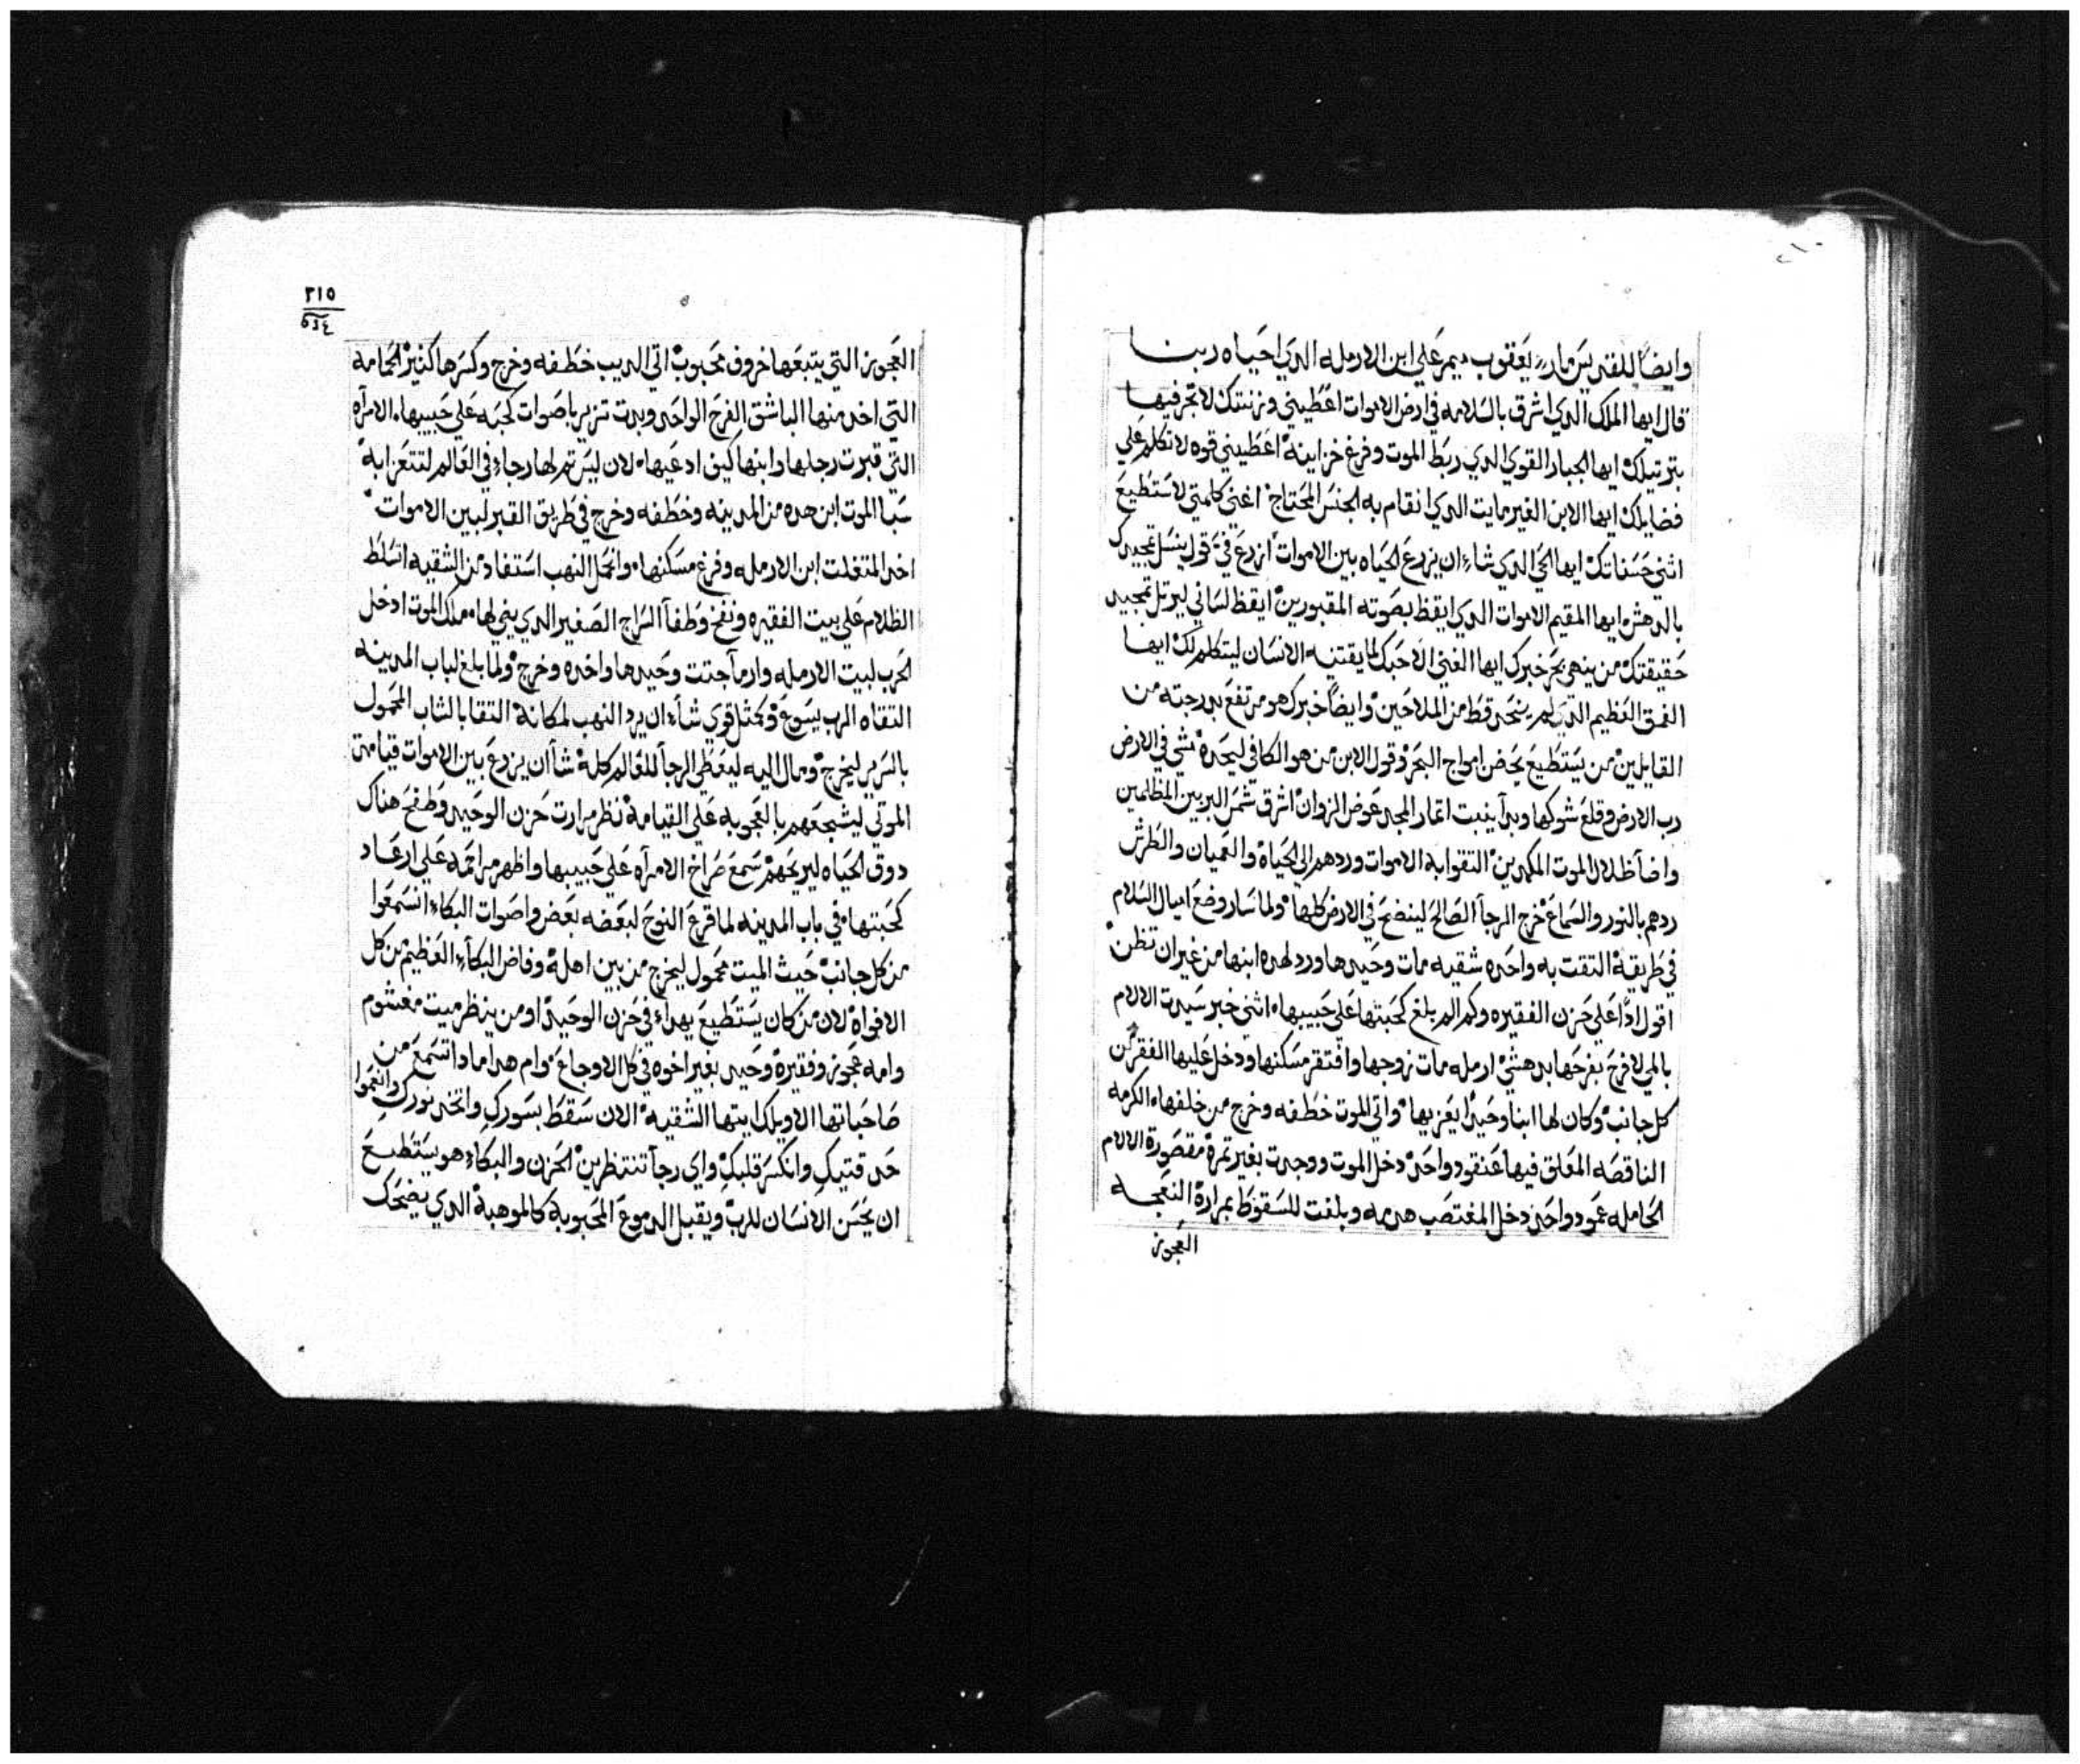 وايضاً للقديس مار يعقوب ميمر علي ابن الارمله الدي احياه ربنا
قال ايها الملك الدي اشرق بالسلامه في ارض الاموات اعطيني وزنتك لاتجر فيها
بترتيلك ايها الجبار القوي الدي ربط الموت وفرغ خزاينهْ اعطيني قوه لاتكلم علي
فضايلك ايها الابن الغير مايت الدي انقام به الجنس المحتاجْ اغني كلمتي لاستطيع
اثني حسناتكْ ايها الحي الدي شاء ان يزرع الحياه بين الاموات ازرع فيَ قول ينسل تمجيدك
بالدهش ايها المقيم الاموات الدي ايقظ بصوته المقبورينْ ايقظ لساني ليرتل تمجيد
حقيقتكْ من ينهي بحر خبرك ايها الغني الا حبك لما يقتنيه الانسان ليتكلم لكْ ايها
العمق العظيم الدي لم ينحد قط من الملاحينْ وايضاً خبرك هو مرتفع بدرجته من
القايلينْ من يستطيع يحض امواج البحرْ وقول الابن من هو الكافي ليحدهْ مشي في الارض
رب الارض وقلع شوكها وبدآ ينبت اتمار المجد عوض الزوانْ اشرق شمس البر بين المظلمين
واضآ ظلال الموت المكمدينْ التقوا به الاموات وردهم الي الحياهْ والعميان والطرش
ردهم بالنور والسماعْ خرج الرجآ الصالح لينضح في الارض كلهاْ ولما سار وضع اميال السلام
في طريقهْ التقت به واحده شقيه مات وحيدها ورد لهده ابنها من غير ان تظنْ
اقول ادًا علي حزن الفقيره وكم الم بلغ محبتها علي حبيبهاْ اثني خبر سيدت الالام
بالمي لافرح بفرحها بدهشيْ ارمله مات زوجها وافتقر مسكنها ودخل عليها الفقر من
كل جانبْ وكان لها ابنا وحيدًا يعزيهاْ واتي الموت خطفه وخرج من خلفهاْ الكرمه
الناقصه المعلق فيها عنقود واحدْ دخل الموت ووجدت بغير تمرهْ مقصورة الالام
الحامله عمود واحد دخل المغتصب هدمه وبلغت للسقوط بمرارةْ النعجه
العجوز
٣١٥
العجوز التي يتبعها خروف محبوبْ اتي الديب خطفه وخرج وكسرها كنيز الحمامه
التي اخد منها الباشق الفرخ الواحد وبدت تزير باصوات محبه علي حبيبهاْ الامرآه
التي قبرت رجلها وابنها كيف ادعيهاْ لان ليس تم لها رجاء في العالم لتتعزا بهْ
سبا الموت ابن هده من المدينه وخطفه وخرج في طريق القبر لبين الامواتْ
اخد المتغلت ابن الارمله وفرغ مسكنهاْ وانحل النهب استفاد من الشقيه اتسلط
الظلام علي بيت الفقيره ونفخ وطفآ السراج الصغير الدي يني لهاْ ملك الموت ادخل
الحرب لبيت الارمله وارمآ جتت وحيدها واخده وخرجْ ولما بلغ لباب المدينه
التقاه الرب يسوعْ وكمثل قوي شآء ان يرد النهب لمكانهْ التقا بالشاب المحمول
بالسرير ليخرجْ ومال اليه ليعطي الرجآ للعالم كلهْ شآ ان يزرع بين الاموات قيامة
الموتي ليشجعهم بالعجوبه علي القيامهْ نظر مرارت حزن الوحيد وطفح هناك
دوق الحياه ليريحهمْ سمع صراخ الامرآه علي حبيبها واظهر مراحمه علي ارعاد
محبتهاْ في باب المدينه لما قرع النوح لبعضه بعض واصوات البكاء انسمعوا
من كل جانبْ حيث الميت محمول ليخرج من بين اهلهْ وفاض البكآء العظيم من كل
الافواهْ لان من كان يستطيع يهداء في حزن الوحيدْ او من ينظر ميت مغشوم
وامه عجوز وفقيرهْ وحيد بغير اخوه في كل الاوجاعْ وام هدا مادا تسمع من
صاحباتها الا ويلك ايتها الشقيهْ الان سقط بسوركِ واتخد نوركِ وانعموا
حدقتيكِ وانكسر قلبكِْ واي رجآ تنتظرينْ الحزن والبكاء هو يستطيع
ان يحنن الانسان للربْ ويقبل الدموع المحبوبهْ كالموهبهْ الدي يضحك